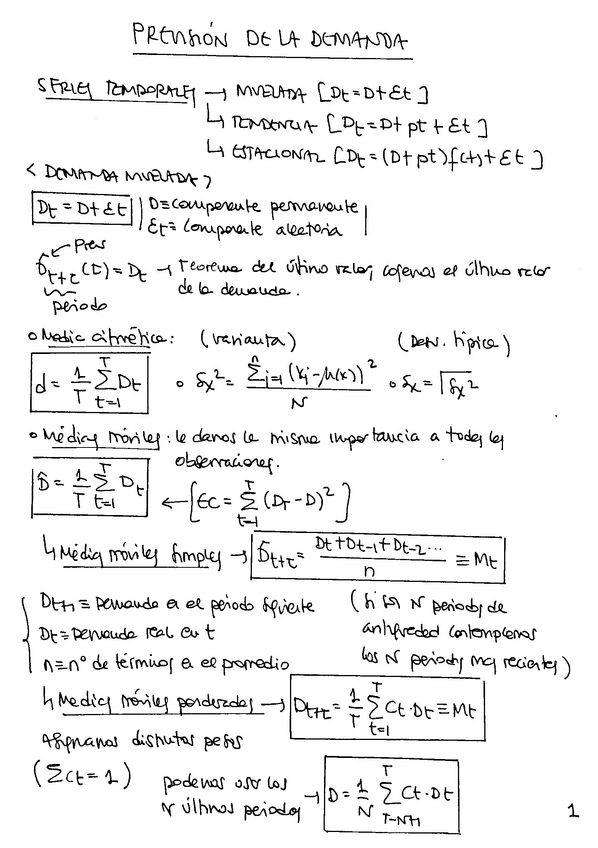 PREVISIÓN DE LA DEMANDA
SERIES TEMPORALES → NIVELADA [Dt = D + Ɛt]
↳ TENDENCIA [Dt = D + pt + Ɛt]
↳ ESTACIONAL [Dt = (D + pt) f(t) + Ɛt]
< DEMANDA NIVELADA >
Dt = D + Ɛt | D ≡ componente permanente
Ɛt ≡ componente aleatoria
← Prev
D̂t+τ (t) = Dt → Teorema del último valor, cogemos el último valor
de la demanda.
periodo
o Media aritmética: (varianza) (Desv. típica)
d = 1/T Σ(t=1, T) Dt o Sx² = Σ(i=1, n) (xi - μ(x))² / N o Sx = √Sx²
o Médias móviles: le damos la misma importancia a todas las
observaciones.
D̂ = 1/T Σ(t=1, T) Dt ← [EC = Σ(t=1, T) (DT - D)²]
↳ Médias móviles simples → D̂t+τ = (Dt + Dt-1 + Dt-2 ...) / n ≡ Mt
Dt+1 ≡ Demanda en el periodo siguiente (Si son N periodos de
Dt ≡ Demanda real en t antigüedad contemplamos
n ≡ nº de términos en el promedio los N periodos mas recientes)
↳ Medias móviles ponderadas → Dt+τ = 1/T Σ(t=1, T) Ct · Dt ≡ Mt
Asignamos distintos pesos
(Σ Ct = 1) podemos usar los
N últimos periodos → D = 1/N Σ(T-N+1, T) Ct · Dt
1